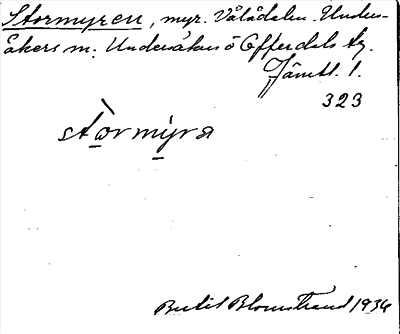 Stormyren, myr. Vålådalen. Under-
åkers sn. Undersåkers o Offerdals tg.
Jämtl. l.
323
stòrmyra
Bertil Blomstrand 1936